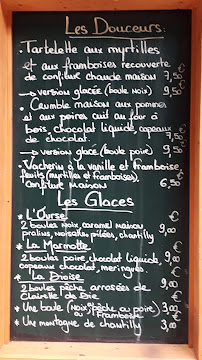 Les Douceurs:
• Tartelette aux myrtilles
et aux framboises recouverte
de confiture chaude maison 7,80 €
→ version glacée (boule noix) 9,50 €
• Crumble maison aux pommes
et aux poires cuit au four à
bois, chocolat liquide, copeaux
de chocolat
→ version glacée (boule poire) 9,50 €
• Vacherin à la vanille et framboise
fruits (myrtilles et framboises),
confiture maison 6,50 €
Les Glaces
* L'Ourse
2 boules noix, caramel maison
pralins, noisettes pilées, chantilly 9,00 €
* La Marmotte
2 boules poire, chocolat liquide,
copeaux chocolat, meringues. 9,00 €
* La Dioise
2 boules pêche arrosées de
Clairette de Die 9,00 €
* Une boule (Noix, pêche ou poire) 3,00 €
Framboise
* Une montagne de chantilly